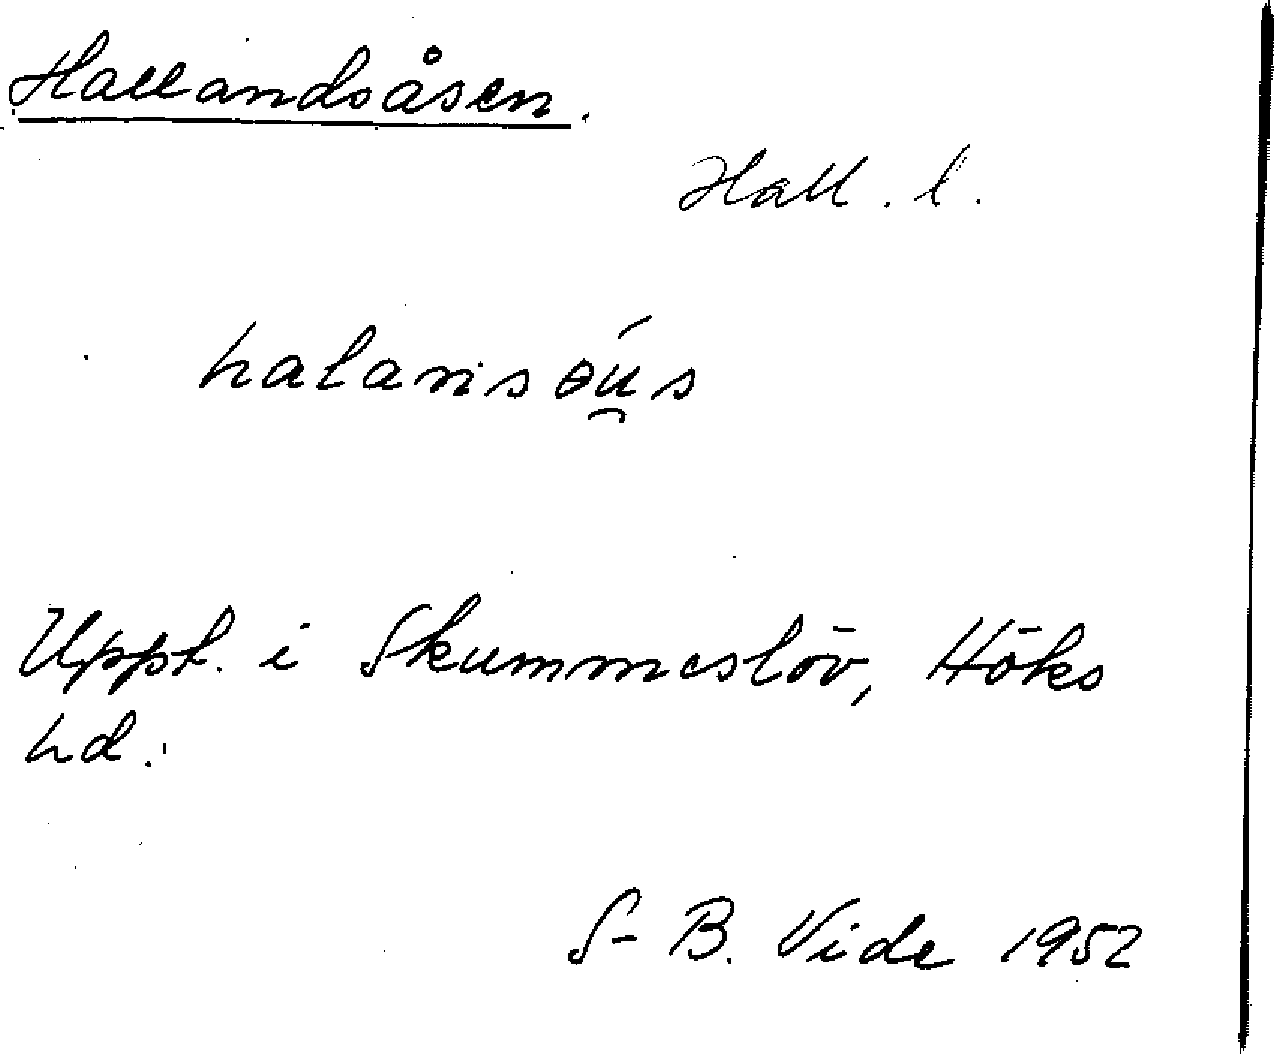 Hallandsåsen.
Hall. l.
halansɵú̯s
Uppt. i Skummeslöv, Höks
hd.
S-B. Vide 1952